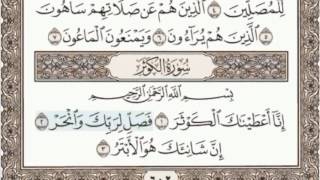 لِّلْمُصَلِّينَ ٤ الَّذِينَ هُمْ عَن صَلَاتِهِمْ سَاهُونَ
٥ الَّذِينَ هُمْ يُرَاءُونَ ٦ وَيَمْنَعُونَ الْمَاعُونَ ٧
سُورَةُ الكَوْثَرِ
بِسْمِ اللَّهِ الرَّحْمَٰنِ الرَّحِيمِ
إِنَّا أَعْطَيْنَاكَ الْكَوْثَرَ ١ فَصَلِّ لِرَبِّكَ وَانْحَرْ ٢
إِنَّ شَانِئَكَ هُوَ الْأَبْتَرُ ٣
٦٠٢